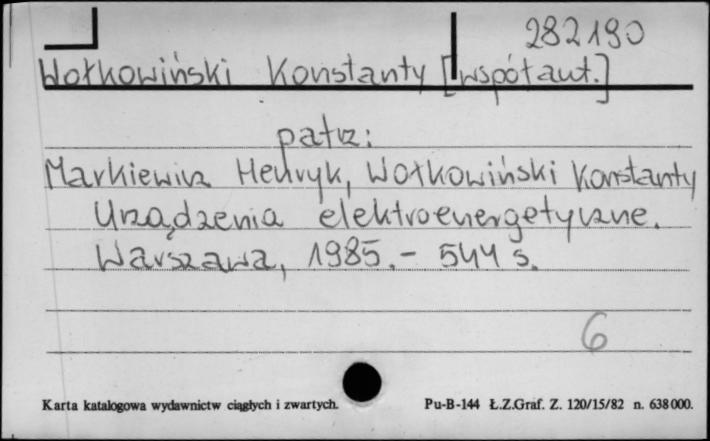 282190
Wołkowiński Konstanty [współaut.]
patrz:
Markiewicz Henryk, Wołkowiński Konstanty
Urządzenia elektroenergetyczne.
Warszawa, 1985.- 544 s.
6
Karta katalogowa wydawnictw ciągłych i zwartych. Pu-B-144 Ł.Z.Graf. Z. 120/15/82 n. 638000.